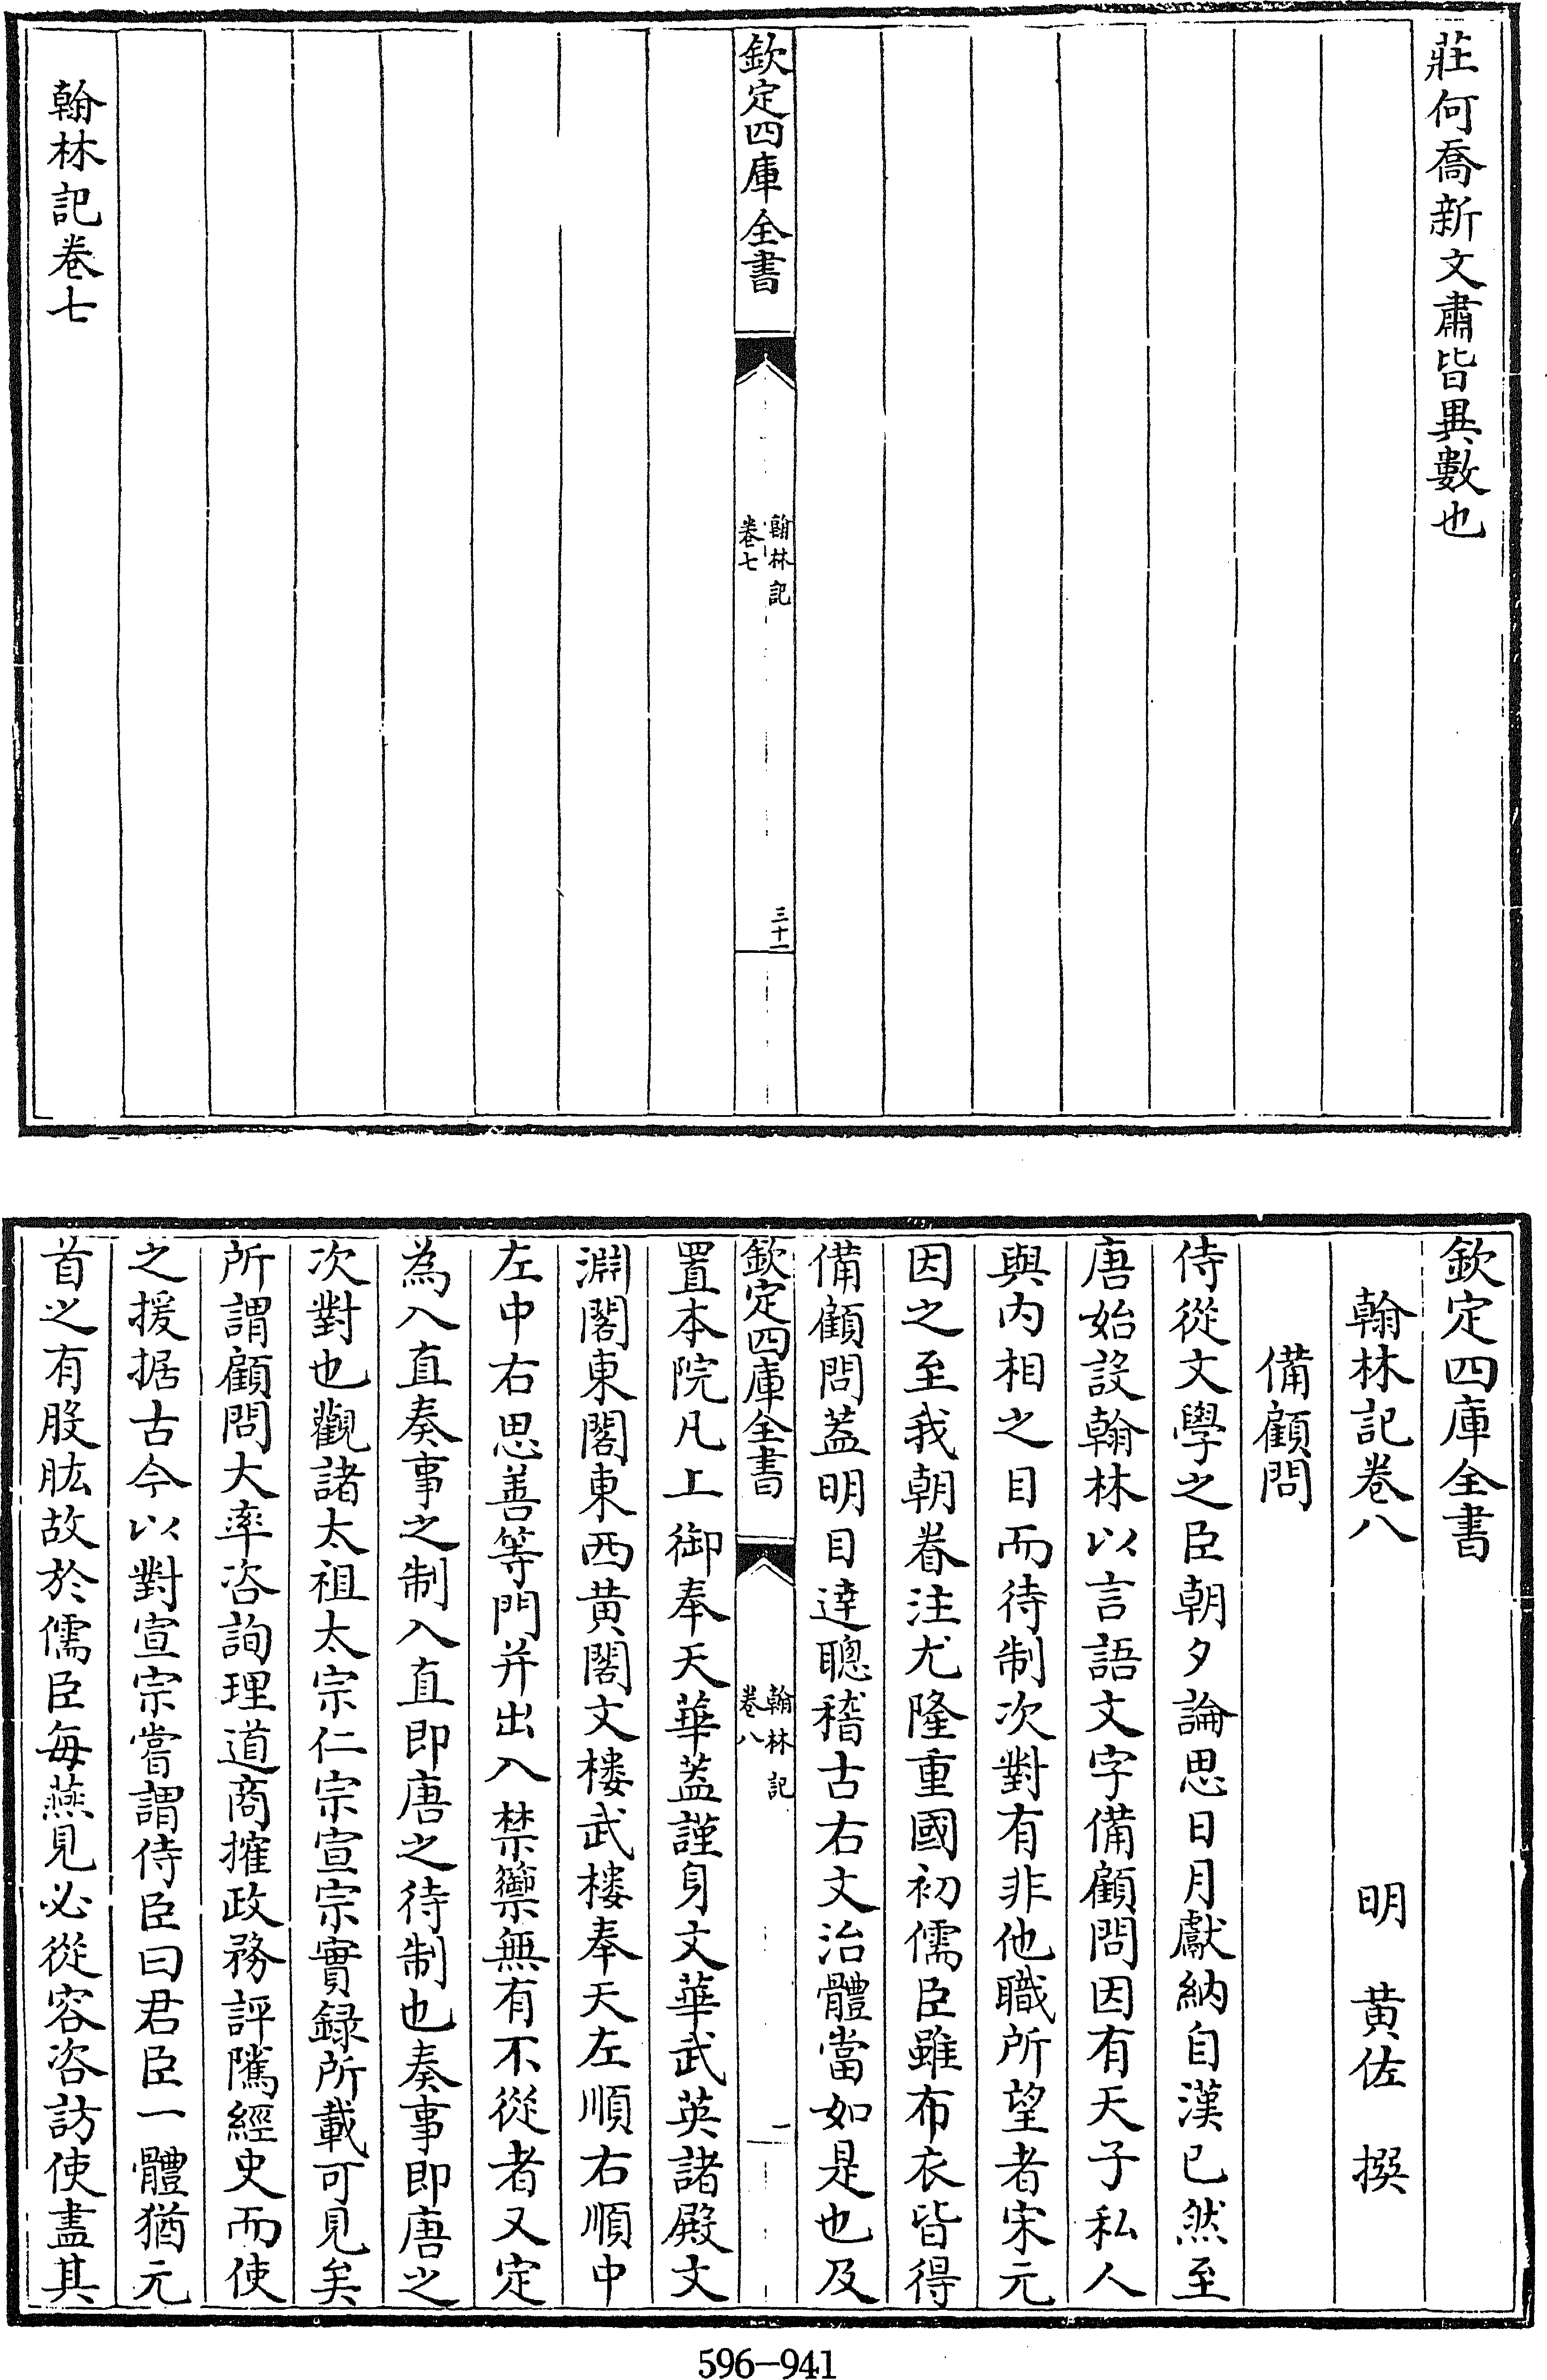 莊何喬新文肅皆異數也
欽定四庫全書
翰林記
卷七
三十一
翰林記卷七
欽定四庫全書
翰林記卷八
明 黄佐 撰
備顧問
侍從文學之臣朝夕論思日月獻納自漢已然至
唐始設翰林以言語文字備顧問因有天子私人
與内相之目而待制次對有非他職所望者宋元
因之至我朝眷注尤隆重國初儒臣雖布衣皆得
備顧問蓋明目達聰稽古右文治體當如是也及
欽定四庫全書
翰林記
卷八
一
置本院凡上御奉天華蓋謹身文華武英諸殿文
淵閣東閣東西黄閣文樓武樓奉天左順右順中
左中右思善等門并出入禁籞無有不從者又定
為入直奏事之制入直即唐之待制也奏事即唐之
次對也觀諸太祖太宗仁宗宣宗實録所載可見矣
所謂顧問大率咨詢理道商搉政務評隲經史而使
之援据古今以對宣宗嘗謂侍臣曰君臣一體猶元
首之有股肱故於儒臣每燕見必從容咨訪使盡其
596-941